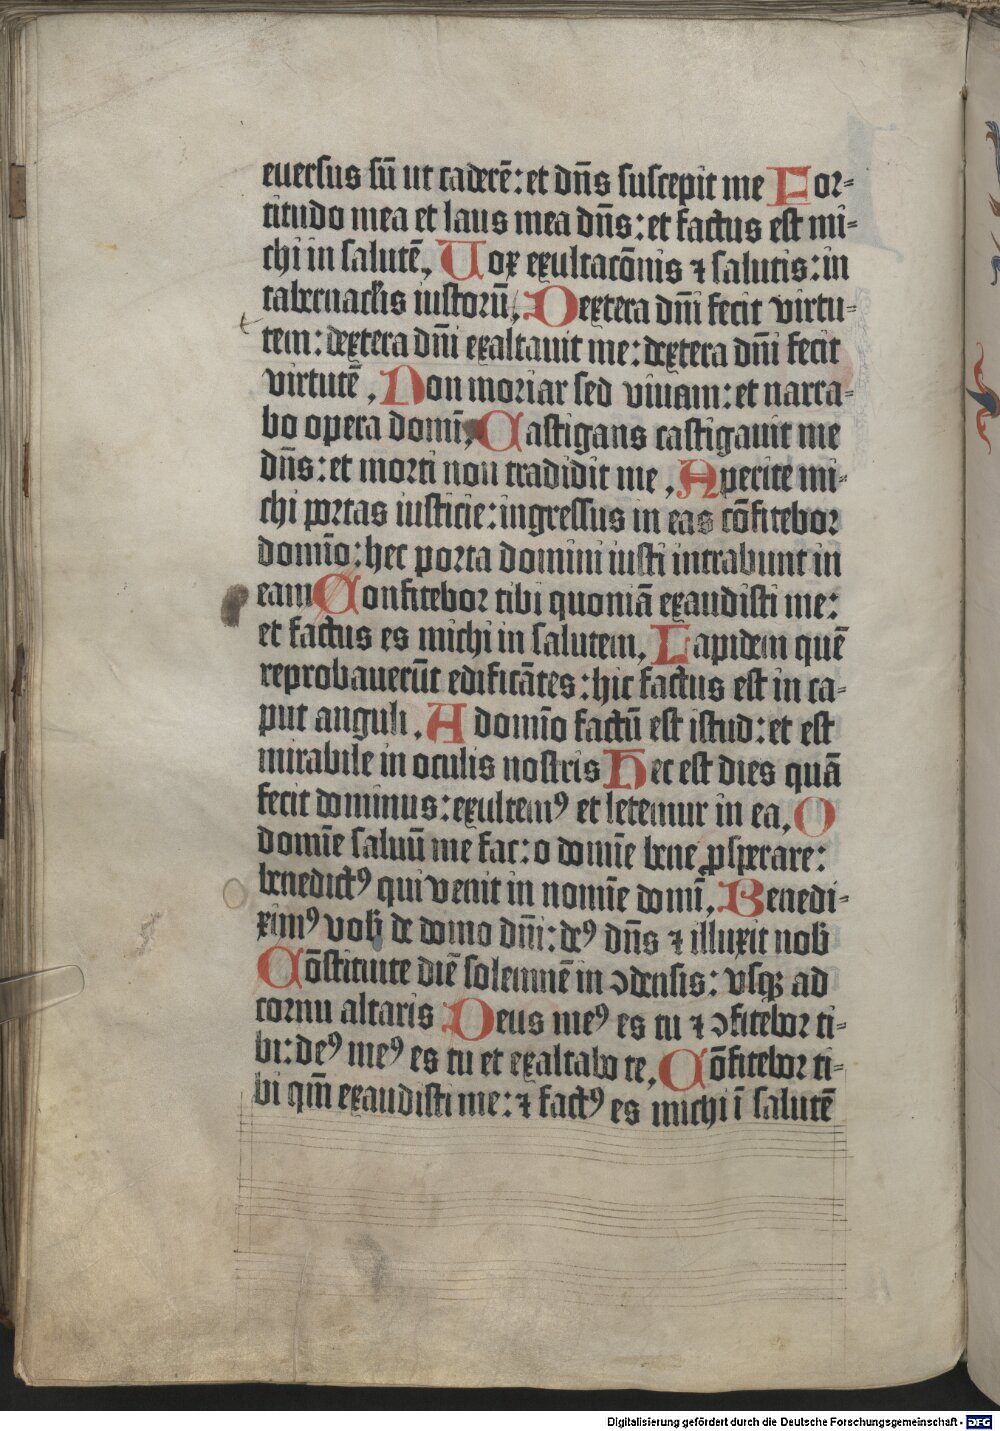 euersus sū ut caderē: et dn̄s suscepit me For-
titudo mea et laus mea dn̄s: et factus est mi-
chi in salutē, Uox exultacōnis ⁊ salutis: in
tabernacl'is iustorū, Dextera dn̄i fecit virtu-
tem: dextera dn̄i exaltauit me: dextera dn̄i fecit
virtutē, Non moriar sed viuam: et narra-
bo opera domī, Castigans castigauit me
dn̄s: et morti non tradidit me, Aperite mi-
chi portas iusticie: ingressus in eas cōfitebor
domīo: hec porta domini iusti intrabunt in
eam Confitebor tibi quoniā exaudisti me:
et factus es michi in salutem, Lapidem quē
reprobauerūt edificātes: hic factus est in ca-
put anguli, A domīo factū est istud: et est
mirabile in oculis nostris Hec est dies quā
fecit dominus: exultemꝰ et letemur in ea, O
domīe saluū me fac: o domīe bene ꝓsperare:
benedictꝰ qui venit in nomīe domī, Benedi-
ximꝰ vob̄ de domo dn̄i: deꝰ dn̄s ⁊ illuxit nob̄
Cōstituite diē solemnē in ↄdensis: vsqꝫ ad
cornu altaris Deus meꝰ es tu ⁊ ↄfitebor ti-
bi: deꝰ meꝰ es tu et exaltabo te, Cōfitebor ti-
bi qm̄ exaudisti me: ⁊ factꝰ es michi ī salutē
Digitalisierung gefördert durch die Deutsche Forschungsgemeinschaft - DFG